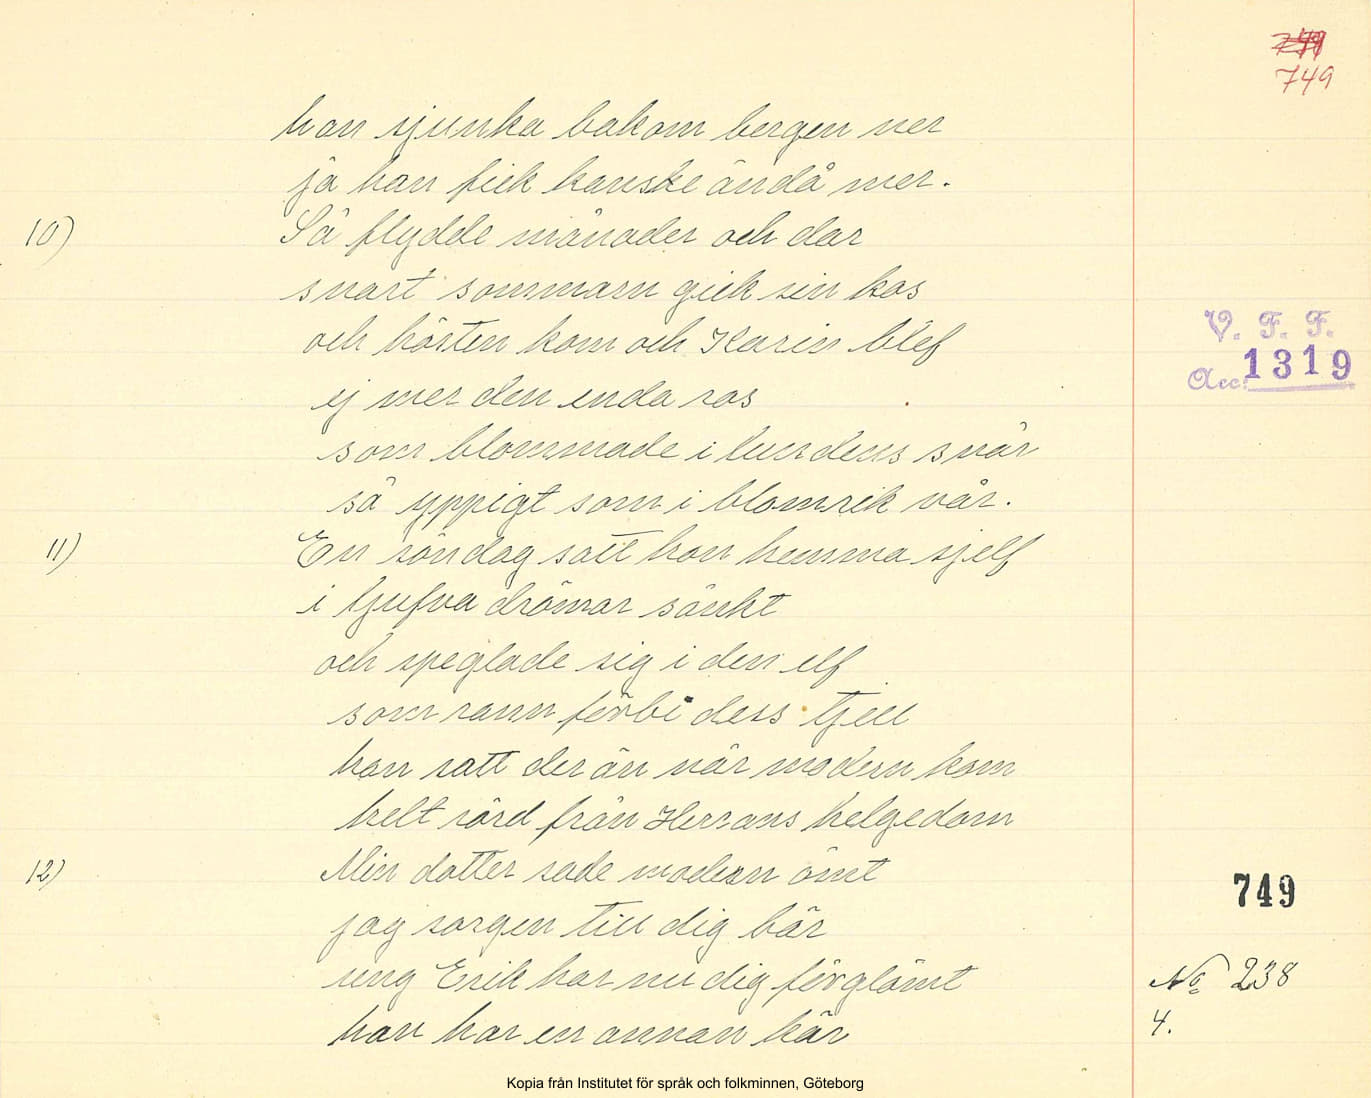 749
749
han sjunka bakom bergen ner
ja han fick kanske ändå mer.
10) Så flydde månader och dar
snart sommarn gick sin kos
och hösten kom och Karin blef
ej mer den enda ros
som blommade i lundens snår
så yppigt som i blomrik vår.
11) En söndag satt hon hemma sjelf
i ljufva drömar sänkt
och speglade sig i den elf
som rann förbi dess tjell
hon satt der än när modern kom
helt rörd från Herrans helgedom
12) Min dotter sade modern ömt
jag sorgen till dig bär
ung Erik har nu dig förglömt
han har en annan kär
V. F. F.
Acc: 1319
749
No 238
4.
Kopia från Institutet för språk och folkminnen, Göteborg